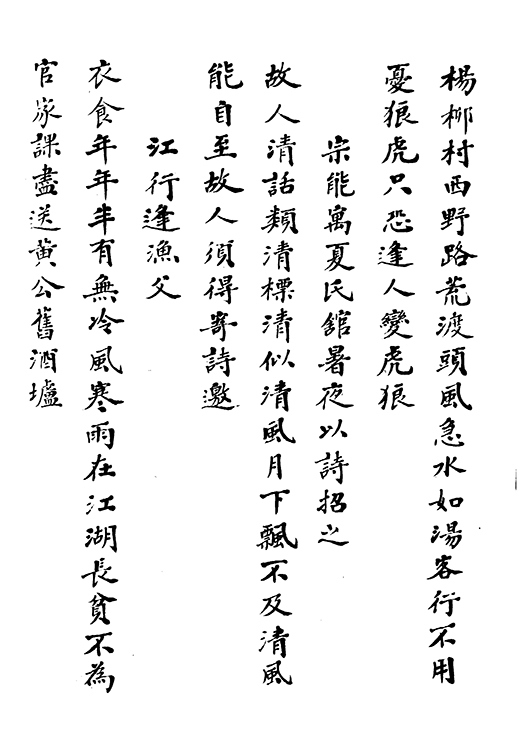 楊柳村西野路荒渡頭風急水如湯客行不用
憂狼虎只恐逢人變虎狼
宗能寓夏氏館暑夜以詩招之
故人清話類清標清似清風月下飄不及清風
能自至故人須得寄詩邀
江行逢漁父
衣食年年半有無冷風寒雨在江湖長貧不為
官家課盡送黃公舊酒壚